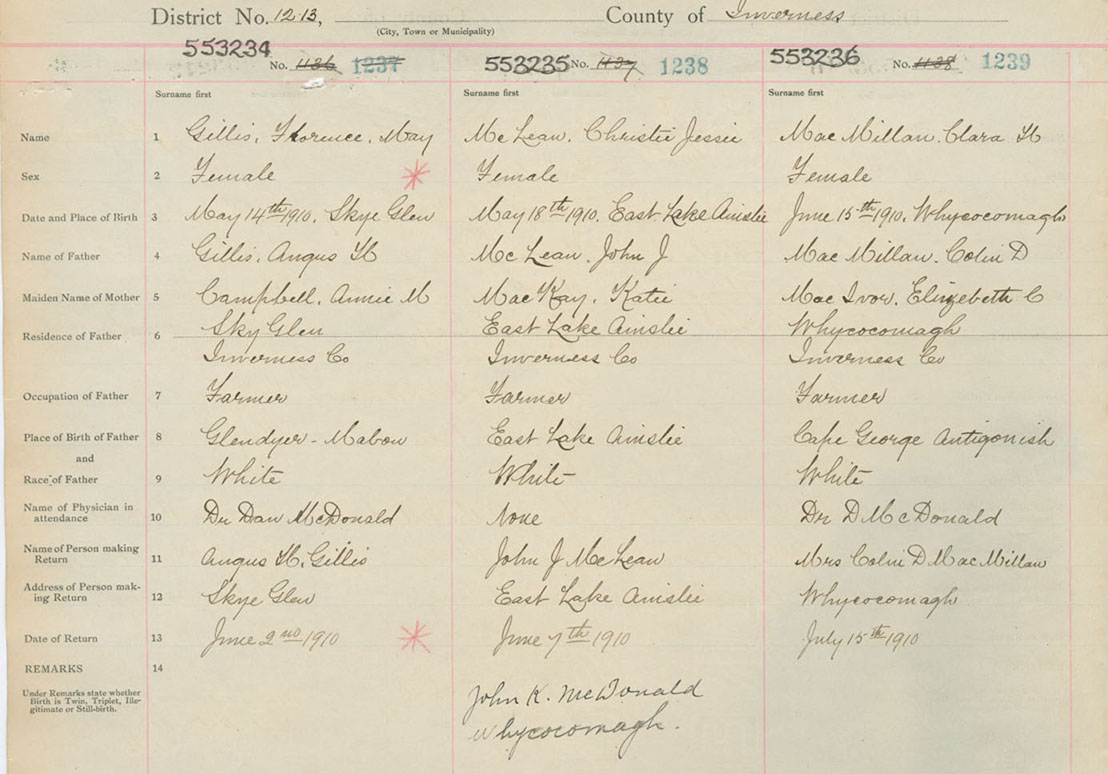 District No. 12-13, County of Inverness
(City, Town or Municipality)
553234 No. 1136 1237 553235 No. 1137 1238 553236 No. 1138 1239
Surname first Surname first Surname first
Name 1 Gillis, Florence, May McLean, Christie Jessie MacMillan, Clara H
Sex 2 Female Female Female
Date and Place of Birth 3 May 14th 1910, Skye Glen May 18th 1910, East Lake Ainslie June 15th 1910, Whycocomagh
Name of Father 4 Gillis, Angus H McLean, John J MacMillan, Colin D
Maiden Name of Mother 5 Campbell, Annie M MacKay, Katie MacIvor, Elizebeth C
Residence of Father 6 Sky Glen East Lake Ainslie Whycocomagh
Inverness Co Inverness Co Inverness Co
Occupation of Father 7 Farmer Farmer Farmer
Place of Birth of Father 8 Glendyer - Mabou East Lake Ainslie Cape George Antigonish
and
Race of Father 9 White White White
Name of Physician in
attendance 10 Dr Dan McDonald None Dr D McDonald
Name of Person making
Return 11 Angus H. Gillis John J McLean Mrs Colin D MacMillan
Address of Person mak-
ing Return 12 Skye Glen East Lake Ainslie Whycocomagh
Date of Return 13 June 2nd 1910 June 7th 1910 July 15th 1910
REMARKS 14
Under Remarks state whether
Birth is Twin, Triplet, Ille-
gitimate or Still-birth.
John K. McDonald
Whycocomagh.